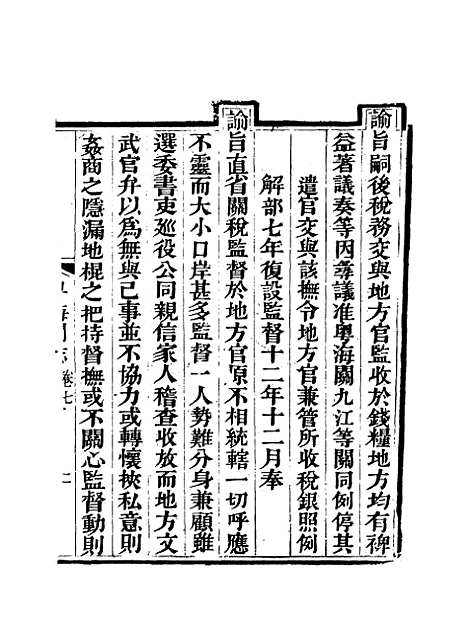 諭旨嗣後稅務交與地方官監收於錢糧地方均有裨
益著議奏等因尋議准粵海關九江等關同例停其
遣官交與該撫令地方官兼管所收稅銀照例
解部七年復設監督十二年十二月奉
諭旨直省關稅監督於地方官原不相統轄一切呼應
不靈而大小口岸甚多監督一人勢難分身兼顧雖
選委書吏巡役公同親信家人稽查收放而地方文
武官弁以為無與己事並不協力或轉懷挾私意則
姦商之隱漏地棍之把持督撫或不關心監督動則
海關志 卷七 二